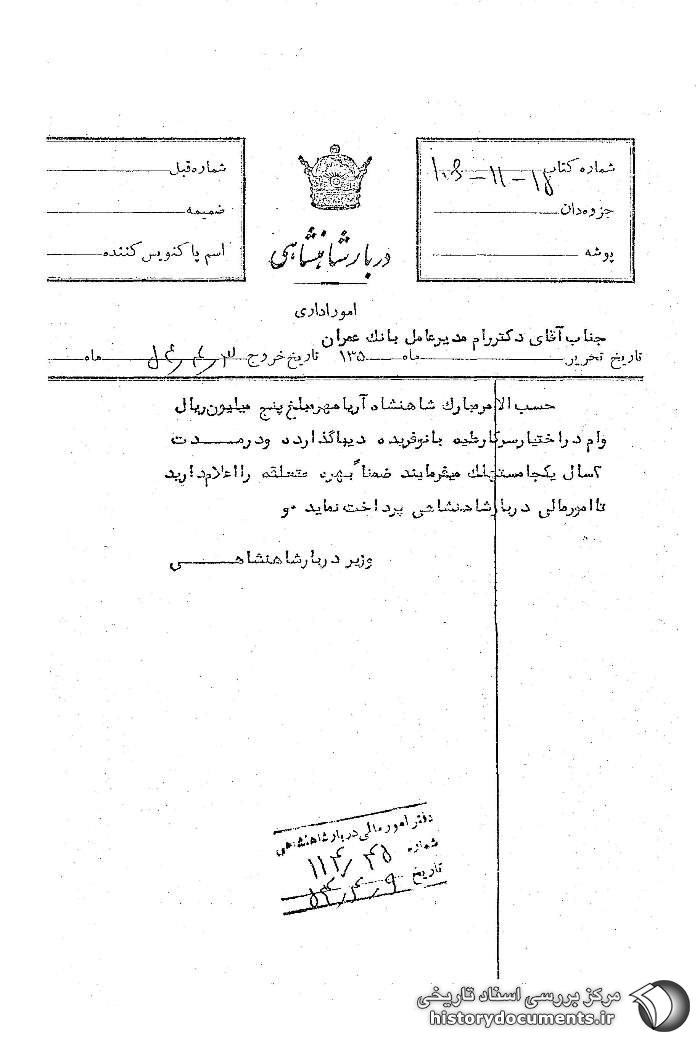 شماره کتاب ۱۰۶-۱۱-۱۵
جزوه‌دان
پوشه
دربار شاهنشاهی
شماره قبل
ضمیمه
اسم پاکنویس کننده
امور اداری
جناب آقای دکتر رام مدیر عامل بانک عمران
تاریخ تحریر ماه ۱۳۵ تاریخ خروج ۵۴/۴/۳ ماه
حسب الامر مبارک شاهنشاه آریامهر مبلغ پنج میلیون ریال
وام در اختیار سرکار علیه بانو فریده دیبا گذارده و در مدت
۲ سال یکجا مستهلک میفرمایند ضمناً بهره متعلقه را اعلام دارید
تا امور مالی دربار شاهنشاهی پرداخت نماید .و
وزیر دربار شاهنشاهی
دفتر امور مالی دربار شاهنشاهی
شماره ۱۱۴/۴۵
تاریخ ۵۴/۴/۹
مرکز بررسی اسناد تاریخی
historydocuments.ir